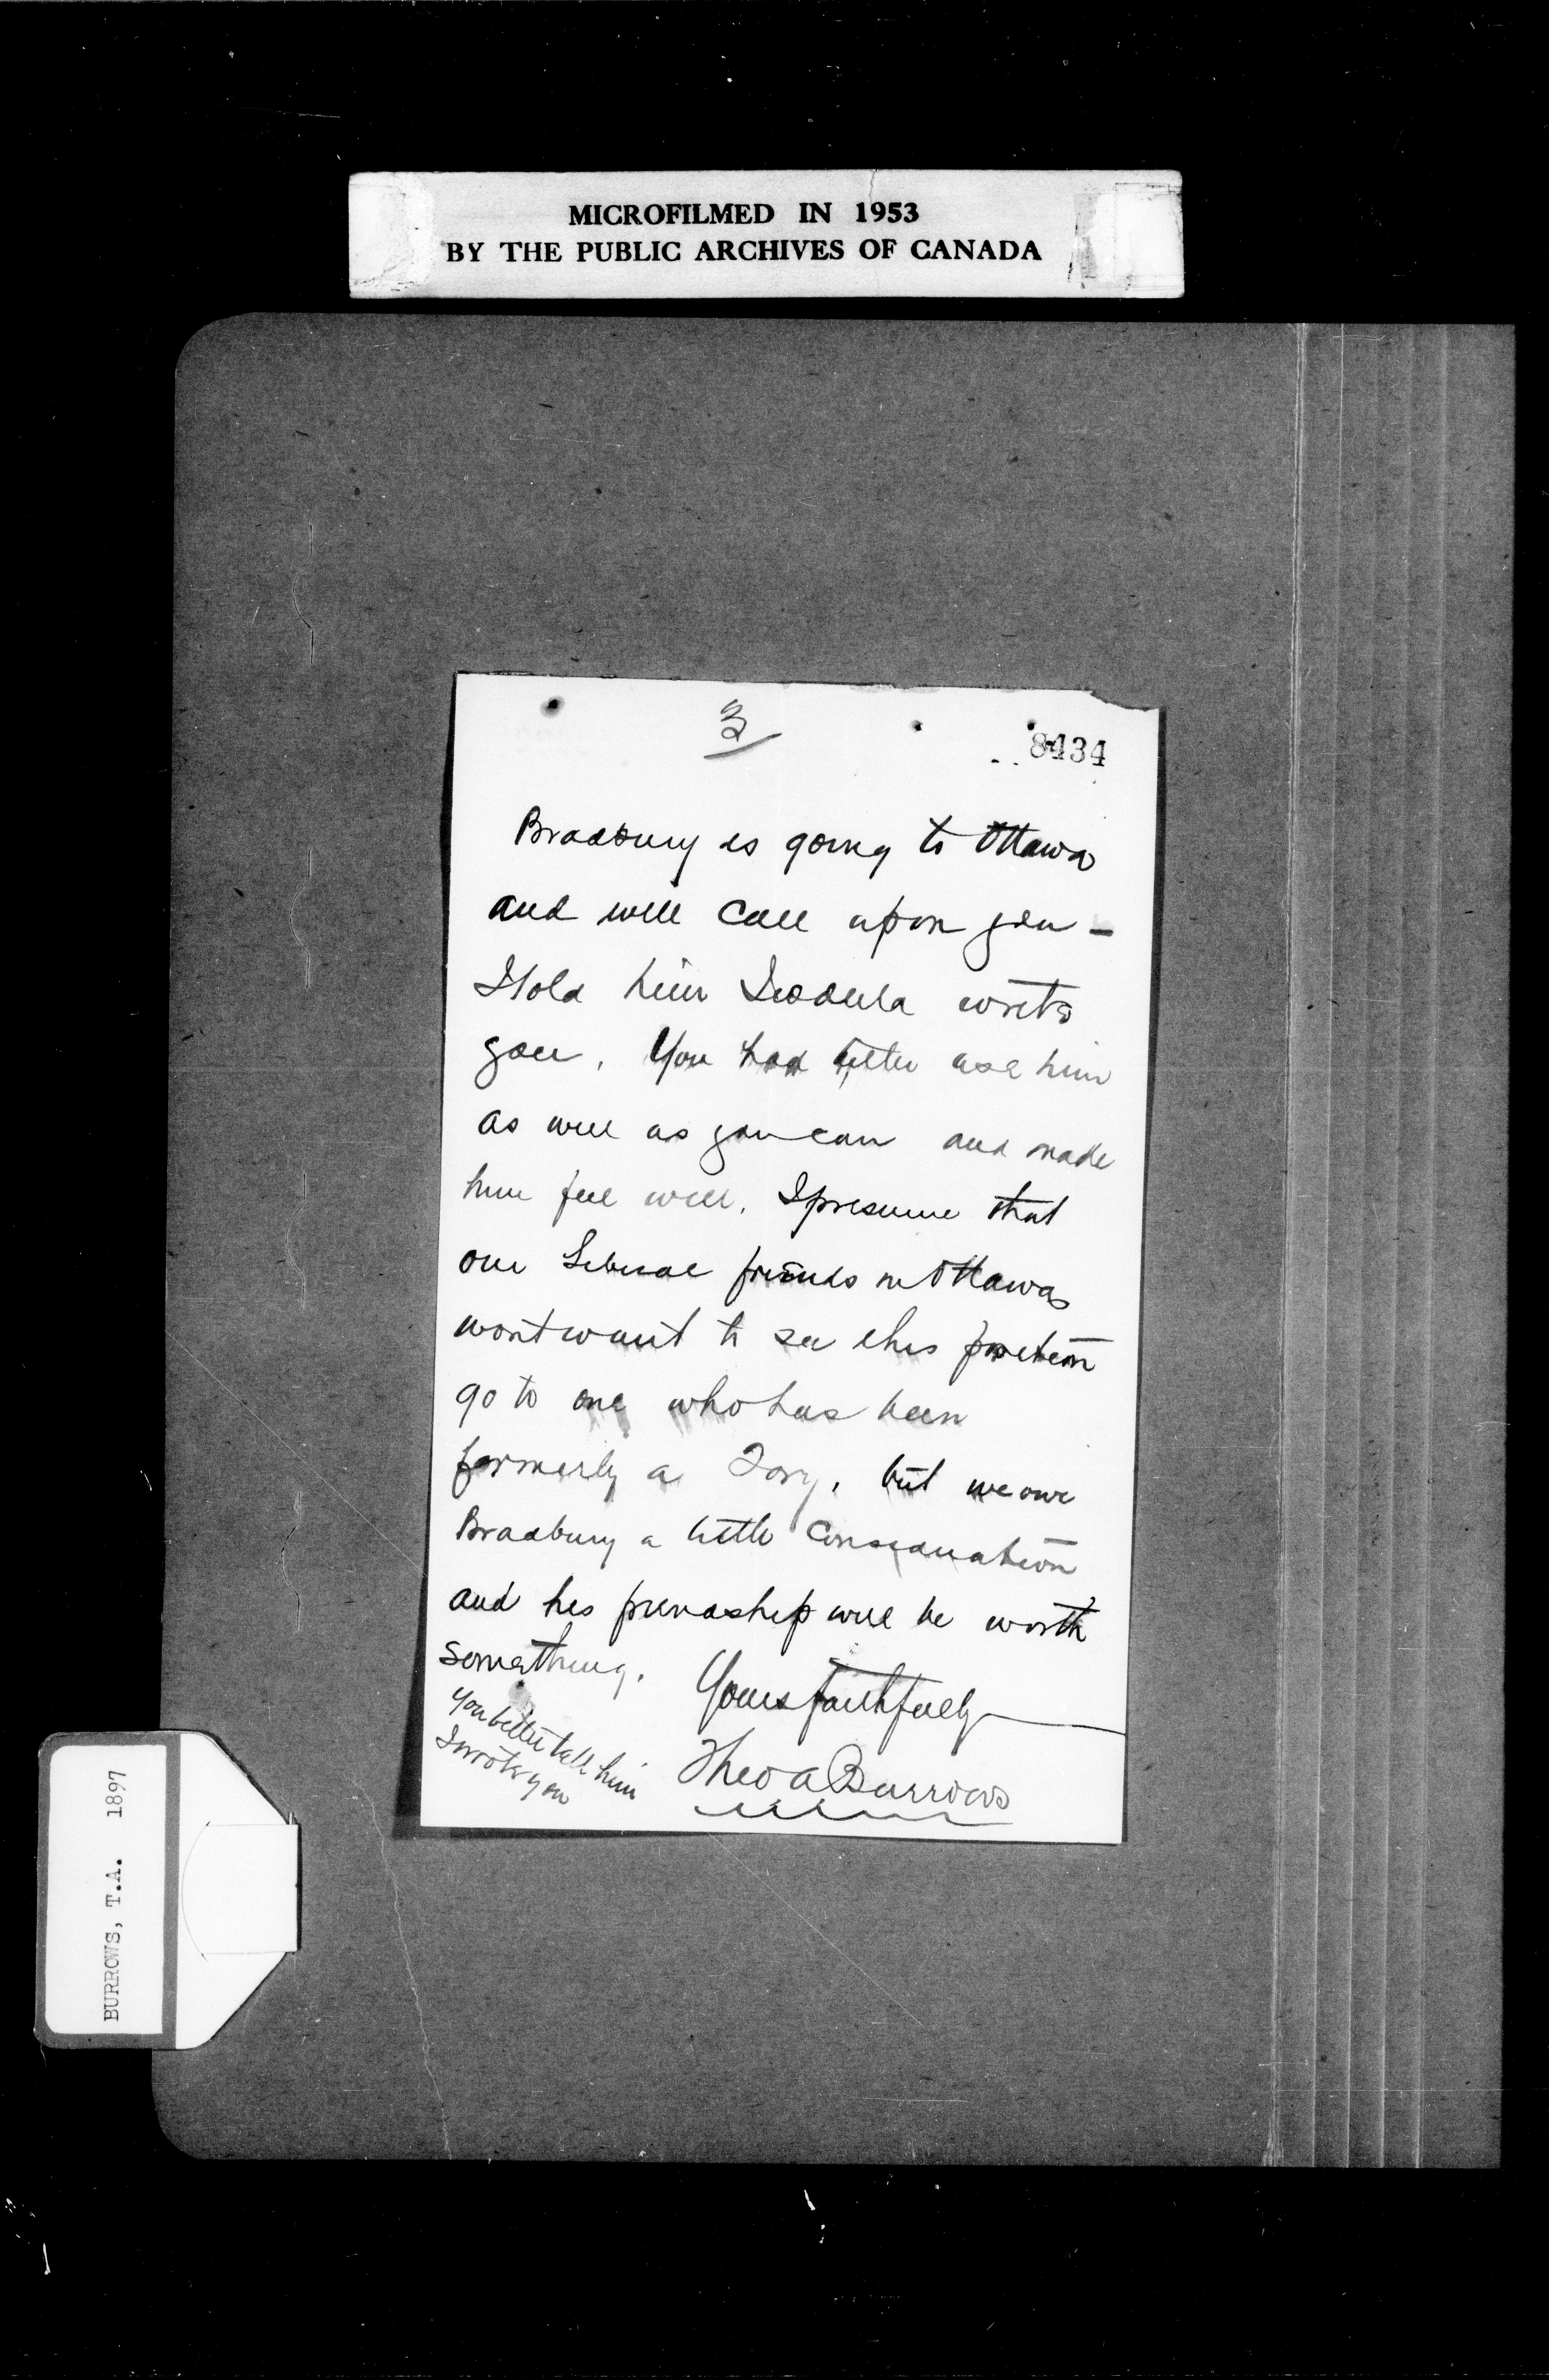 MICROFILMED IN 1953
BY THE PUBLIC ARCHIVES OF CANADA
3
8434
Bradbury is going to Ottawa
and will call upon you -
I told him I would write
you. You had better use him
as well as you can and make
him feel well. I presume that
our Liberal friends in Ottawa
wont want to see this position
go to one who has been
formerly a Tory, but we owe
Bradbury a little consideration
and his friendship will be worth
something. Yours faithfully
Theo A Burrows
You better tell him
I wrote you
BURROWS, T.A. 1897